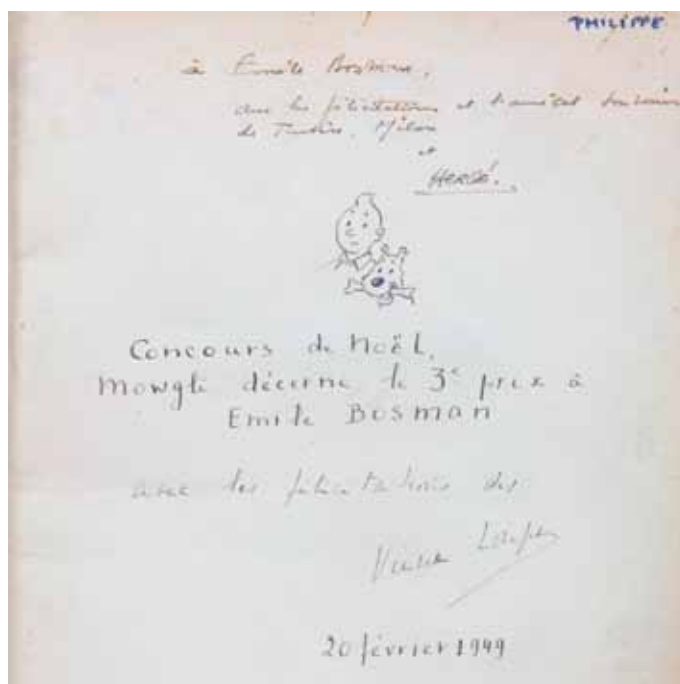 PHILIPPE
à Emile Bosman,
avec les félicitations et l'amical souvenir
de Tintin, Milou
et
HERGÉ.
Concours de Noël.
Mowgli décerne le 3e prix à
Emile BOSMAN
avec les félicitations des
Vieux
20 février 1949